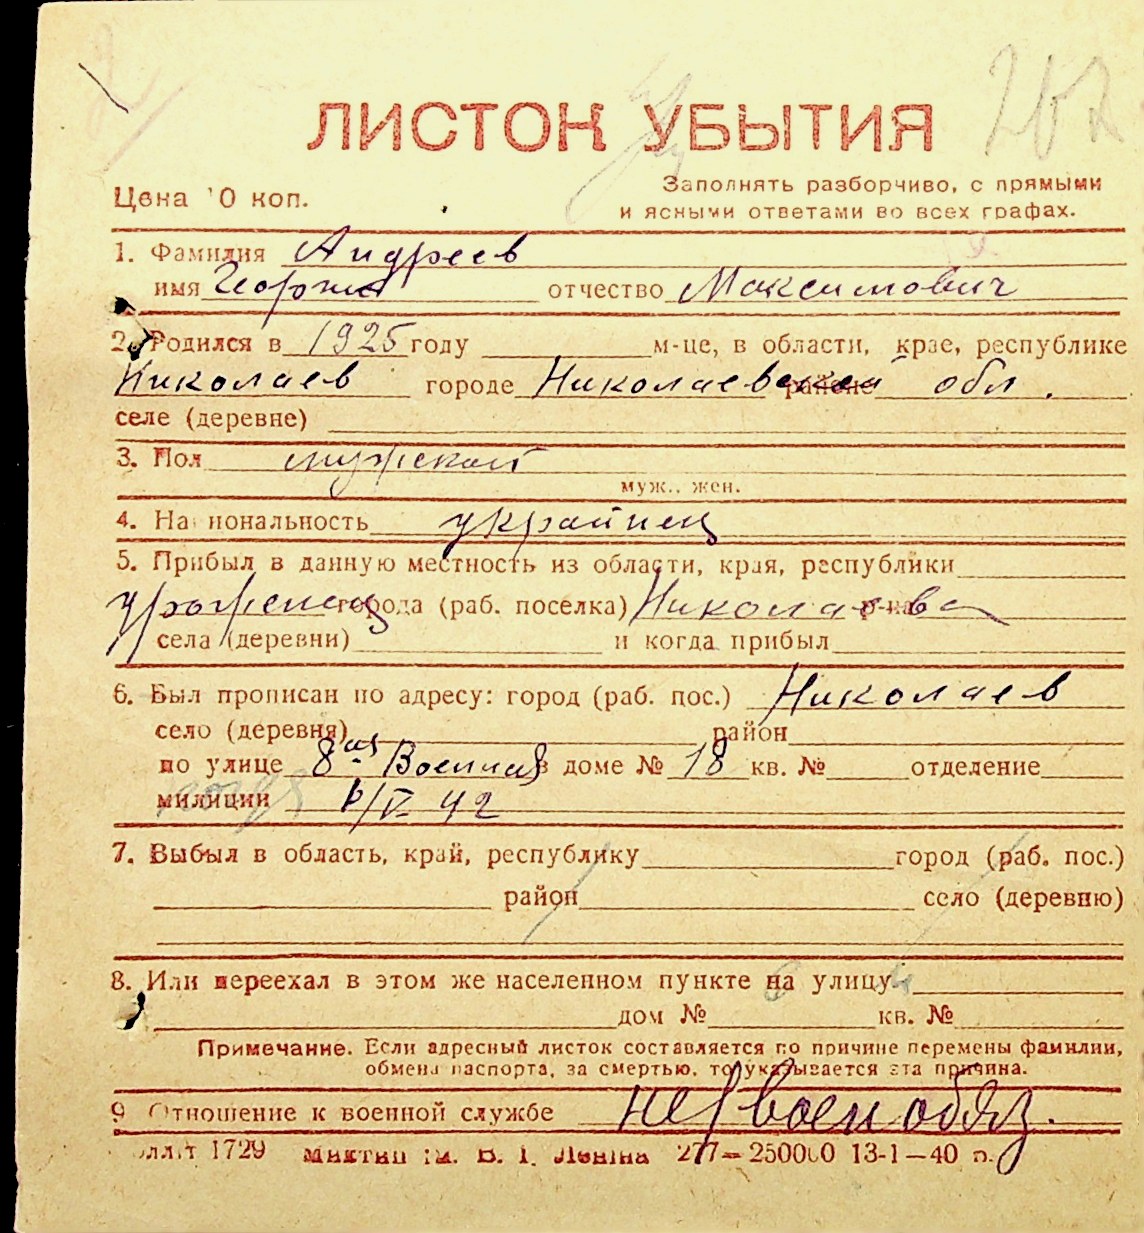 ЛИСТОК УБЫТИЯ
Цена 10 коп.
Заполнять разборчиво, с прямыми
и ясными ответами во всех графах.
1. Фамилия Андреев
имя Георгий отчество Максимович
2. Родился в 1925 году м-це, в области, крае, республике
Николаев городе Николаевской районе обл.
селе (деревне)
3. Пол мужской
муж., жен.
4. Национальность украинец
5. Прибыл в данную местность из области, края, республики
уроженец города (раб. поселка) Николаева р-на
села (деревни) и когда прибыл
6. Был прописан по адресу: город (раб. пос.) Николаев
село (деревня) район
по улице 8ая Военная в доме № 18 кв. № отделение
милиции /V 42
7. Выбыл в область, край, республику город (раб. пос.)
район село (деревню)
8. Или переехал в этом же населенном пункте на улицу
дом № кв. №
Примечание. Если адресный листок составляется по причине перемены фамилии,
обмена паспорта, за смертью, то указывается эта причина.
9 Отношение к военной службе невоенобяз.
1729 Ленина 277—250000 13-1—40 р.